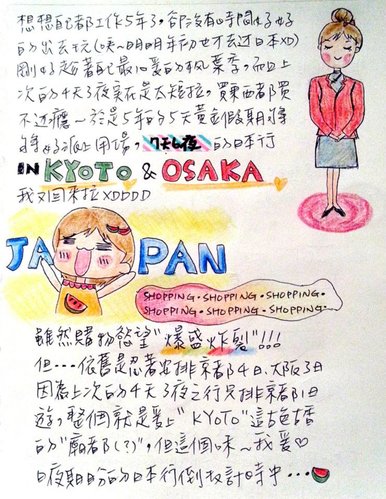 想想自己都工作5年了，卻沒有時間好好
的出去玩(咦~明明年初也才去过日本XD)
剛好趁著自己最愛的楓葉季，而且上
次的4天3夜實在是太短拉，買東西都買
不过癮~於是5年的5天黃金假期
派上用場，7天6夜的日本行
IN KYOTO & OSAKA
我又回來拉XDDDD
JAPAN
SHOPPING·SHOPPING·SHOPPING·
SHOPPING·SHOPPING·SHOPPING·
雖然購物慾望"爆盛炸裂"!!!
但...依舊是忍著安排京都4日.大阪3日
因為上次的4天3夜之行只排京都1日
遊，整個就是愛上"KYOTO"這古色古香
的"廟都(?)"，但這個味~我愛♡
日夜期盼的日本行倒數計時中...